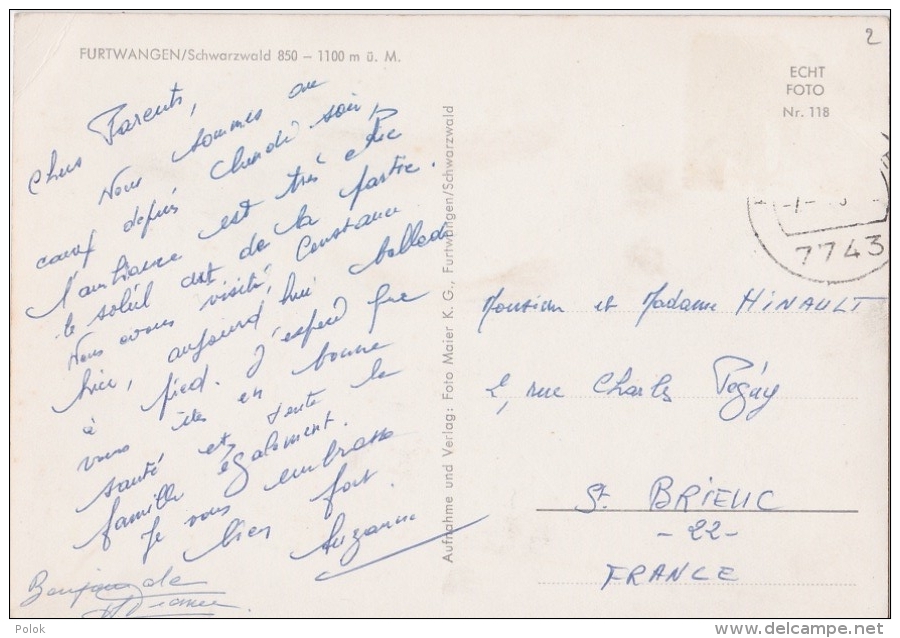 2
FURTWANGEN/Schwarzwald 850 – 1100 m ü. M.
ECHT
FOTO
Nr. 118
Chers Parents,
Nous sommes au
camp depuis Lundi soir,
l'ambiance est très chic
le soleil est de la partie.
Nous avons visité Constance
hier, aujourd'hui ballade
à pied. J'espère que
vous êtes en bonne
santé et toute la
famille également.
Je vous embrasse
bien fort.
Suzanne
Aufnahme und Verlag: Foto Maier K. G., Furtwangen/Schwarzwald
7743
Monsieur et Madame HINAULT
2, rue Charles Pégúy
St BRIEUC
-22-
FRANCE
Polok
www.delcampe.net